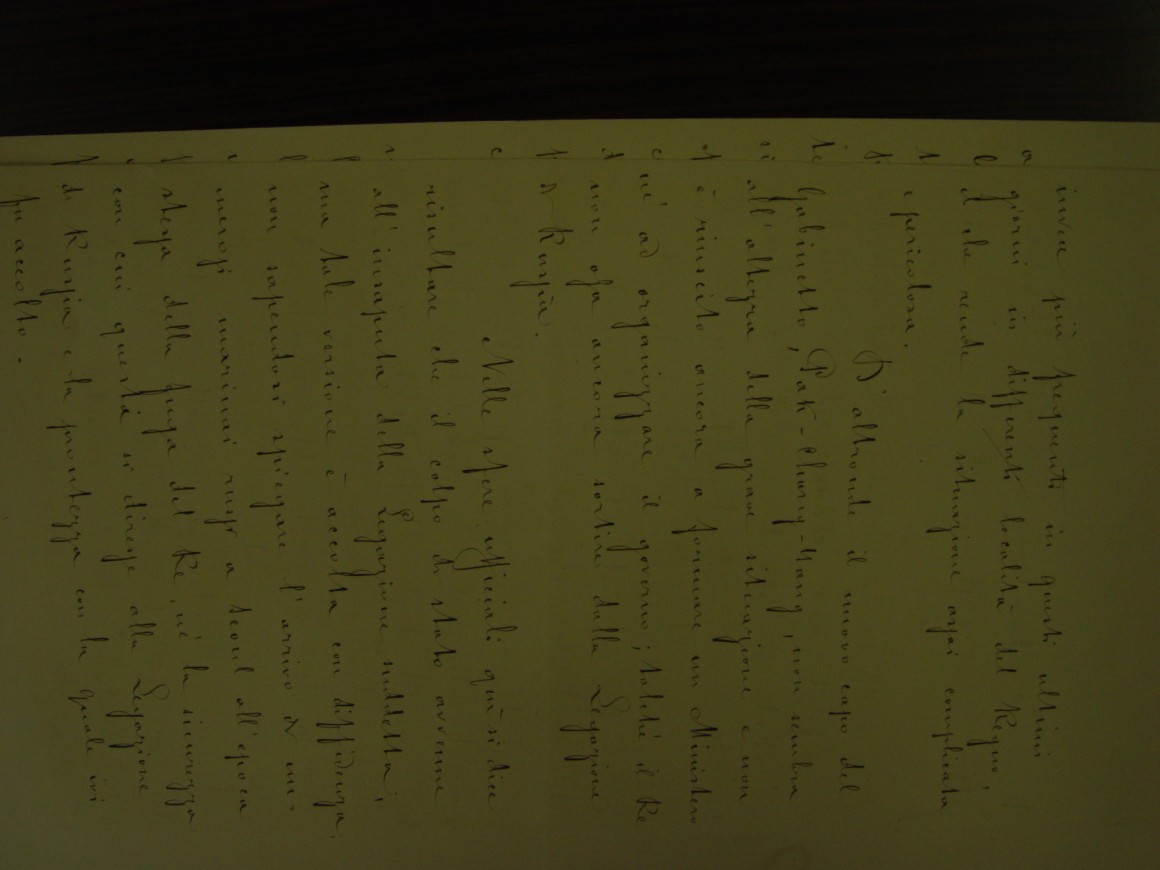 invece più frequenti in questi ultimi
giorni in differenti località del Regno,
il che rende la situazione assai complicata
e pericolosa.
D'altronde il nuovo capo del
Gabinetto, Pak-Chung-Yang, non sembra
all'altezza della grave situazione e non
è riuscito ancora a formare un Ministero
nè ad organizzare il governo; talchè il Re
non osa ancora sortire dalla Legazione
di Russia.
Nelle sfere ufficiali quì si dice
risultare che il colpo di stato avvenne
all'insaputa della Legazione suddetta;
ma tale versione è accolta con diffidenza,
non sapendosi spiegare l'arrivo di nu-
merosi marinai russi a Seoul all'epoca
stessa della fuga del Re, nè la sicurezza
con cui questi si diresse alla Legazione
di Russia e la prontezza con la quale ivi
fu accolto.